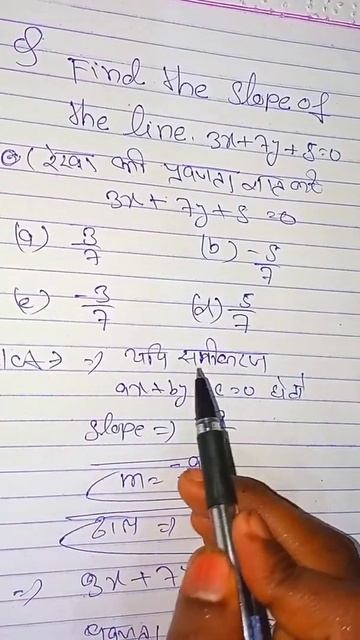 Q Find the slope of
the line. 3x+7y+8=0
(रेखा की प्रवणता ज्ञात करें
3x+7y+8=0
(a) 3/7 (b) -8/7
(c) -3/7 (d) 8/7
⇒ यदि समीकरण
ax+by c=0 हो तो
slope ⇒
m = -a
ढाल ⇒
⇒ 3x+7y